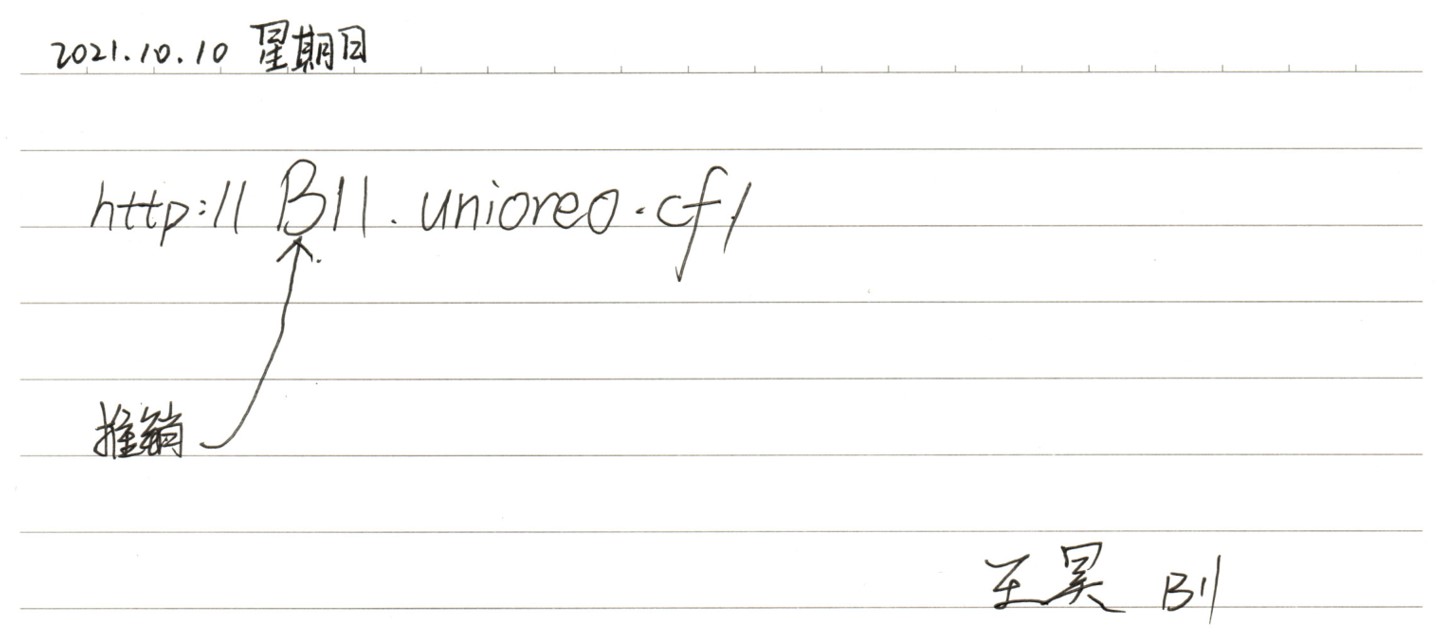 2021.10.10 星期日
http://B11.unioreo.cf/
推销
王昊 B11